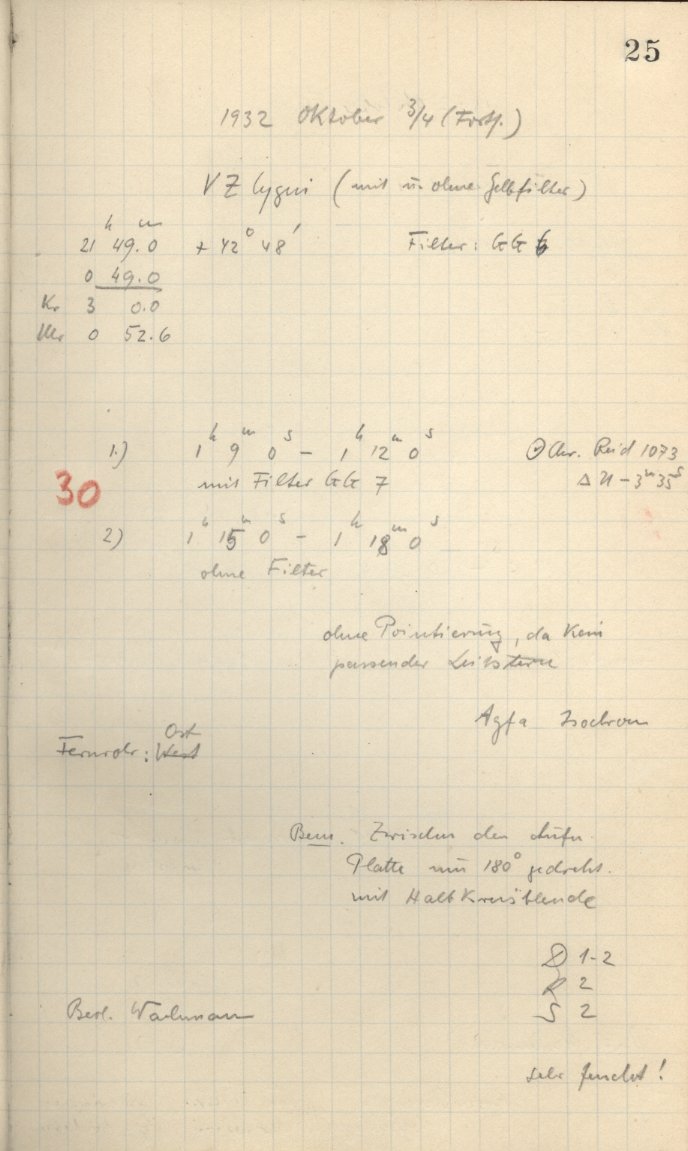 25
1932 Oktober 3/4 (Forts.)
VZ Cygni (mit u. ohne Gelbfilter)
h m
21 49.0 + 42° 48' Filter: GG
0 49.0
Kr 3 0.0
Uhr 0 52.6
1.) 1h 9m 0s – 1h 12m 0s Chr. Reid 1073
mit Filter GG 7 Δu – 3m 35s
30
2) 1h 15m 0s – 1h 18m 0s
ohne Filter
ohne Pointierung, da kein
passender Leitstern
Agfa Isochrom
Ost
Fernrohr: West
Bem. Zwischen den Aufn.
Platte um 180° gedreht.
mit Halbkreisblende
D 1-2
R 2
S 2
Beob. Wachmann
sehr feucht!